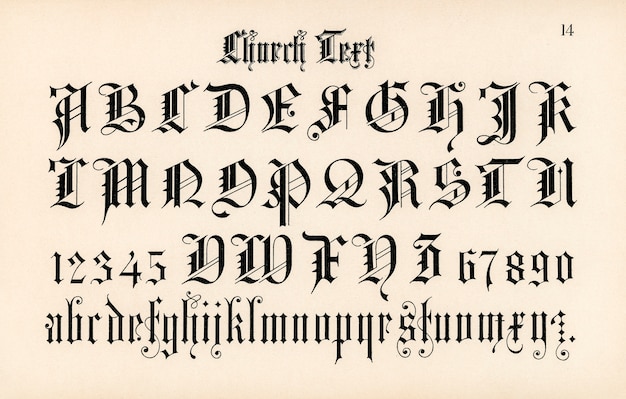 14
Church Text
A B C D E F G H J K
L M N O P Q R S T U
1 2 3 4 5 V W X Y Z 6 7 8 9 0
abcdefghijklmnopqrstuvwxyz.